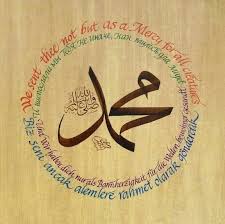 We sent thee not but as a Mercy for all creatures
тебя не иначе, как
Und Wir haben dich nur als Barmherzigkeit für die Welten
Biz seni ancak alemlere rahmet olarak gönderdik
محمد
صلى الله عليه وسلم